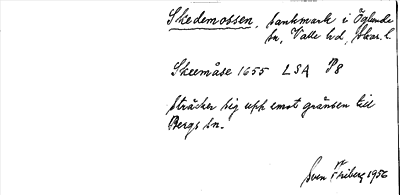 Skedemossen, sankmark i Öglunda
sn, Valle hd, Skar. l.
Skeemåse 1655 LSA P8
sträcker sig upp emot gränsen till
Bergs sn.
Sven Friberg 1956